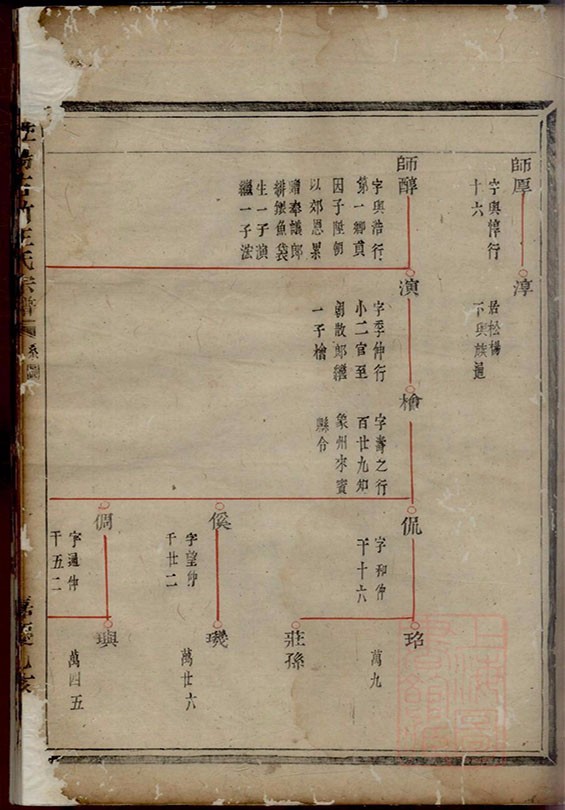 師厚
字與惇行
十六
淳
居松楊
下與族通
師醇
字與浩行
第一鄉貢
因子陞朝
以郊恩累
贈奉議郎
緋銀魚袋
生一子演
繼一子法
演
字季仲行
小二官至
朝散郎繼
一子檜
檜
字壽之行
百廿九知
象州來賓
縣令
侃
字和仲
千十六
珞
萬九
莊孫
俁
字望仲
千廿二
璣
萬廿六
倜
字通仲
千五二
璵
萬四五
石
汪氏宗譜
系圖
嘉慶